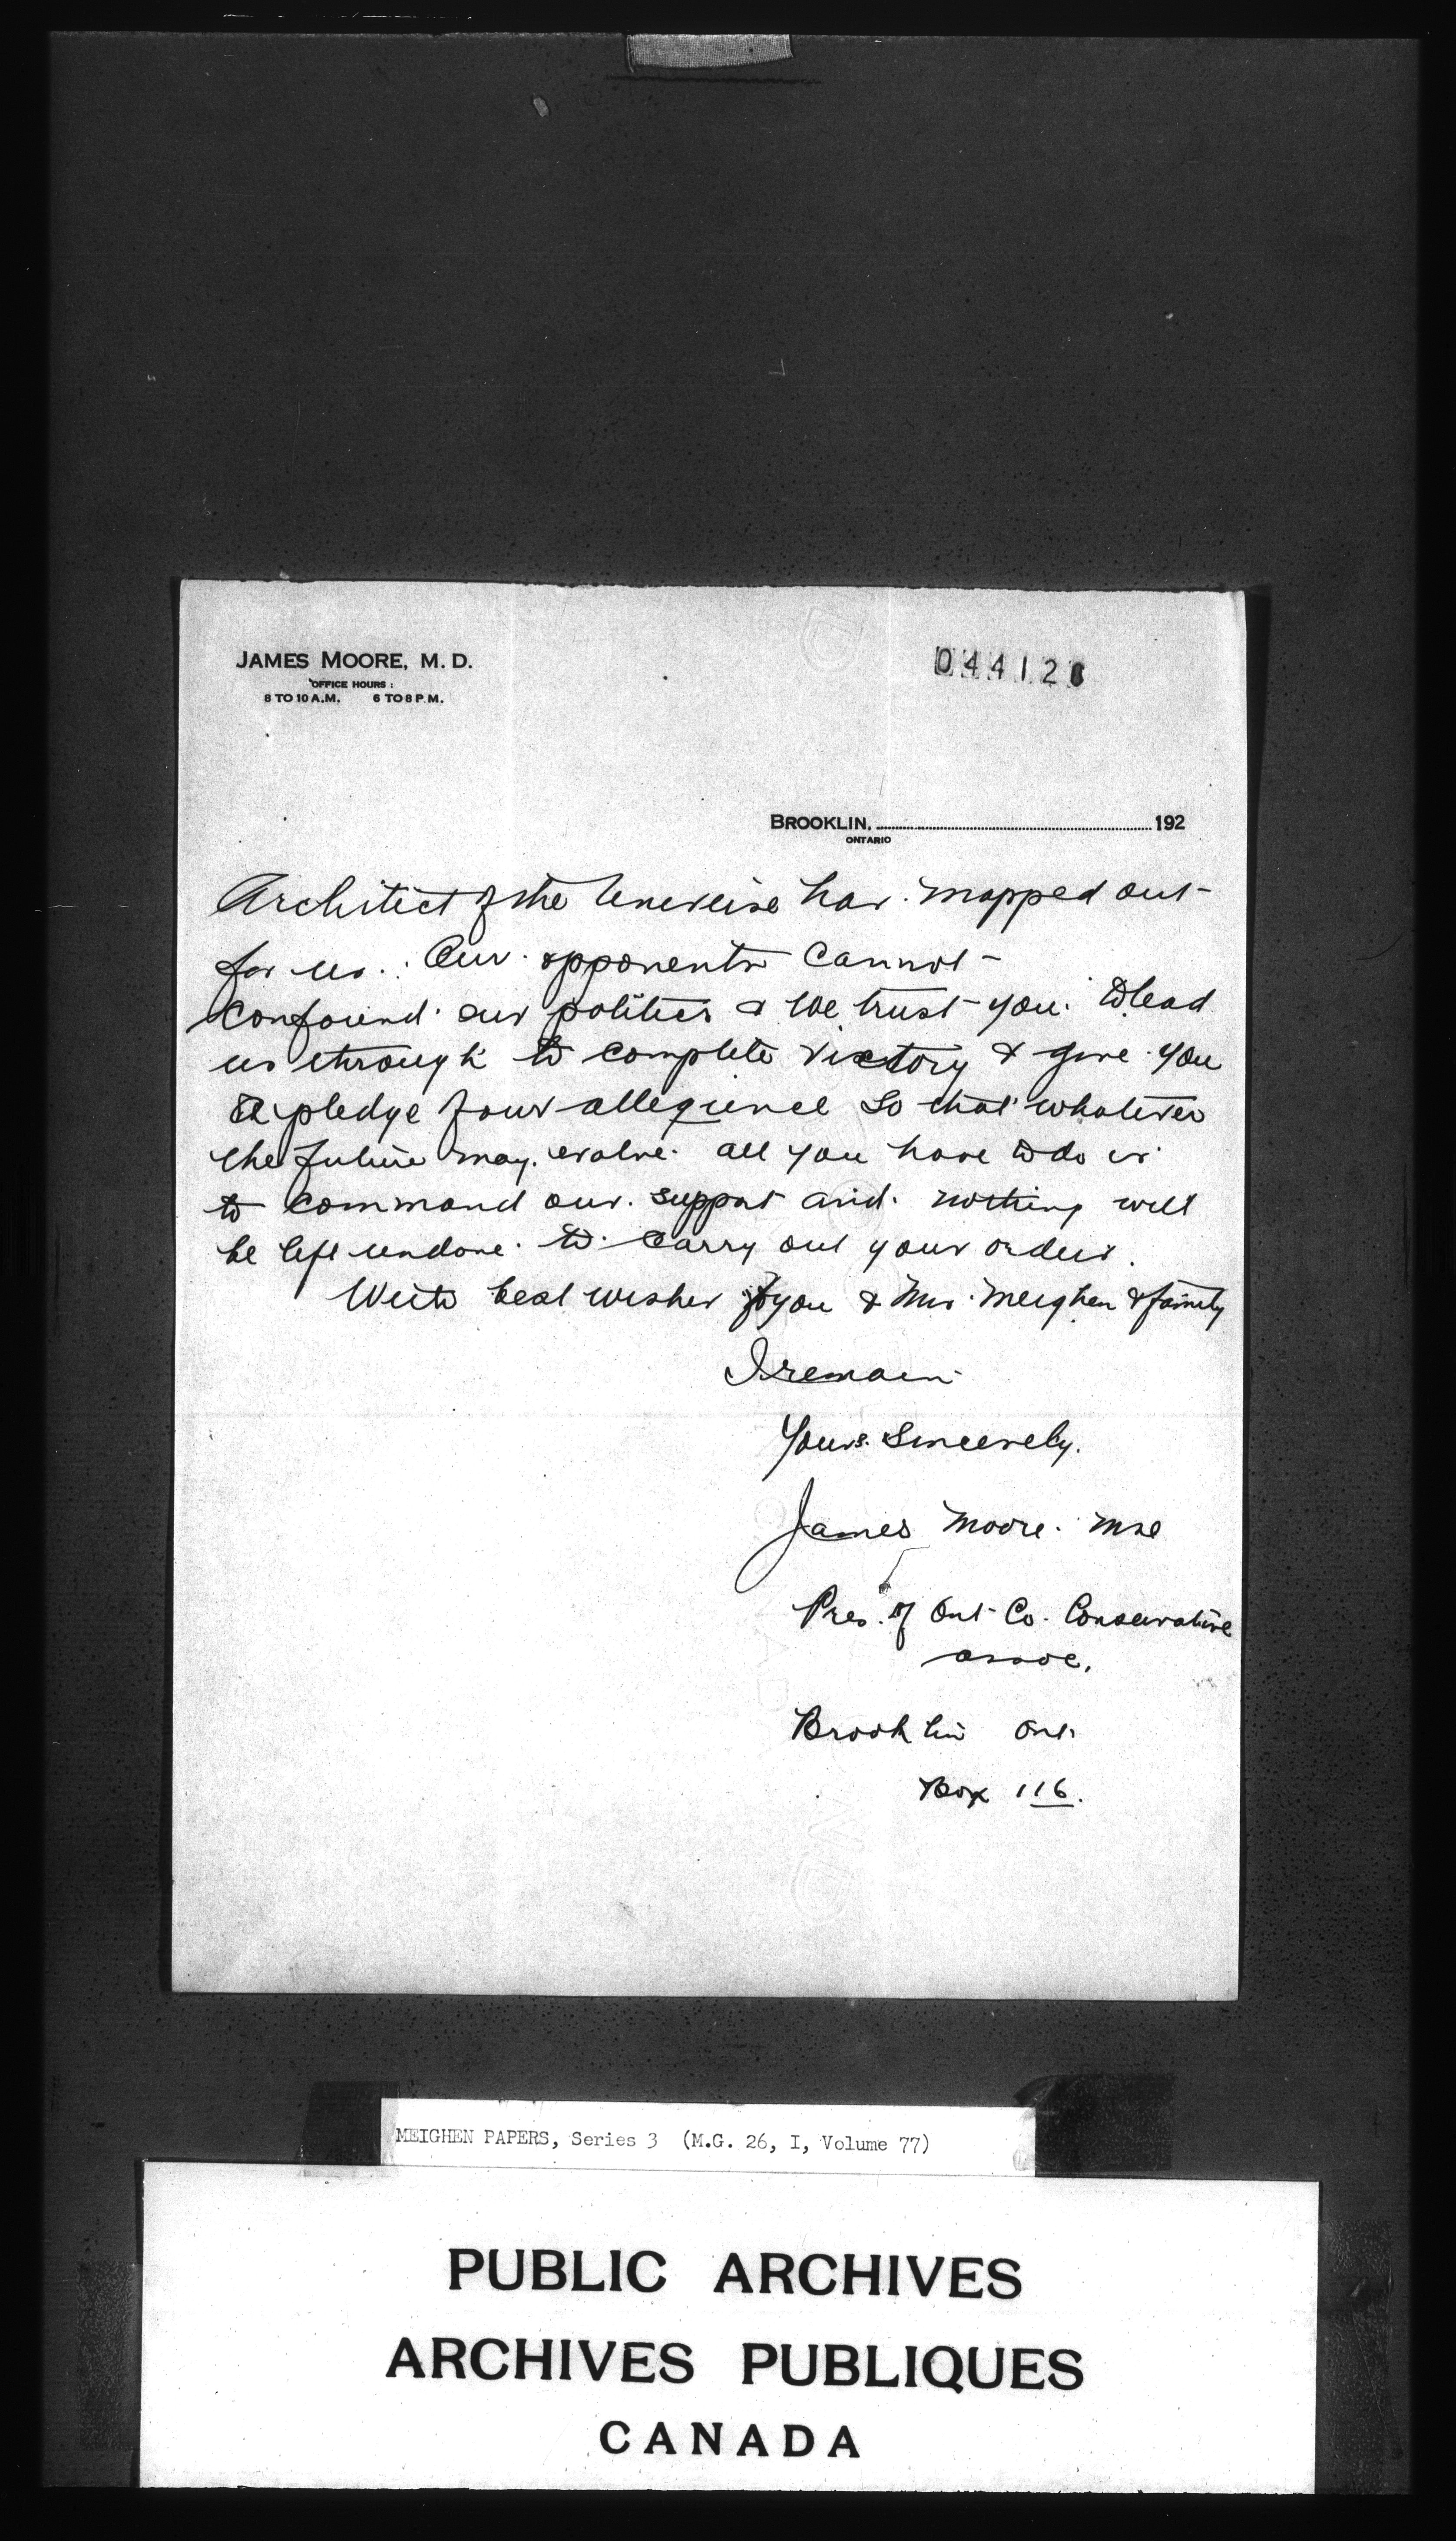 JAMES MOORE, M. D.
OFFICE HOURS :
8 TO 10 A.M. 6 TO 8 P.M.
04412
BROOKLIN, 192
ONTARIO
Architect of the Universe has mapped out
for us. Our opponents cannot
confound our politics & we trust you to lead
us through to complete victory & give you
pledge of our allegience so that whatever
the future may evolve all you have to do is
to command our support and nothing will
be left undone to carry out your orders.
With best wishes to you & Mrs. Meighen & family
I remain
Yours Sincerely.
James Moore.
Pres. of Ont. Co. Conservative
assoc.
Brooklin Ont.
Box 116.
MEIGHEN PAPERS, Series 3 (M.G. 26, I, Volume 77)
PUBLIC ARCHIVES
ARCHIVES PUBLIQUES
CANADA